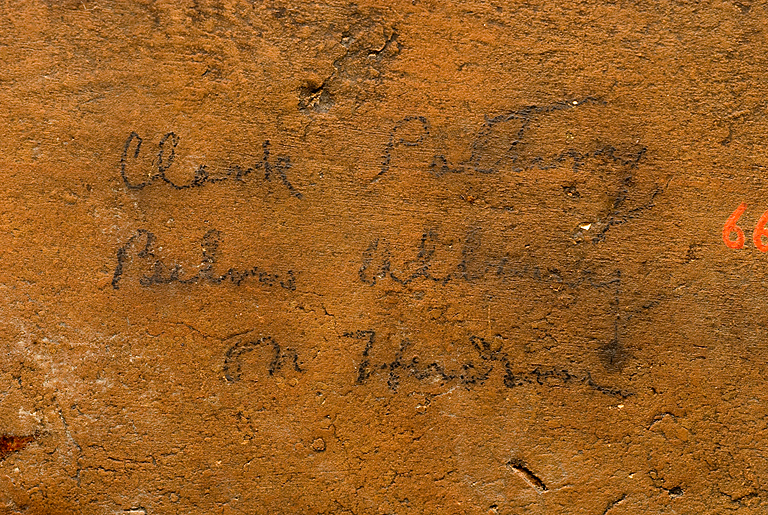 Clark Pottery 66
Below Albany
on Hudson